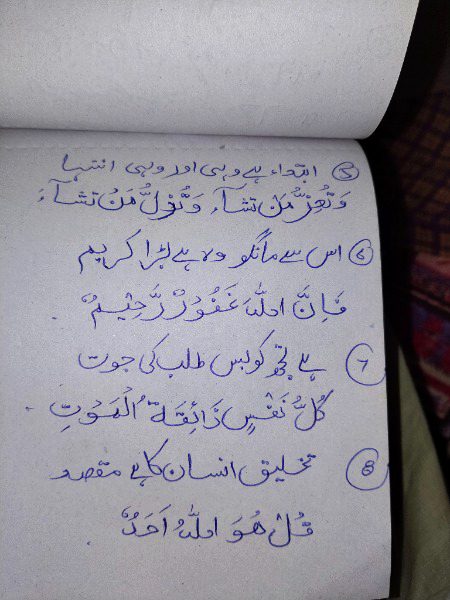 ۵ ابتداء ہے وہی اور وہی انتہا
وَتُعِزُّ مَن تشآء وَتُذِلُّ مَنُ تشآءَ
۶ اس سے مانگو وہ ہے بڑا کریم
فَاِنَّ اللّٰہَ غَفُوُرٌ رَّحِیْمٌ
۷ ہے تجھ کو بس طلب کی جوت
کُلُّ نَفْسٍ ذَائِقَۃُ الْمَوْتِ
۸ تخلیق انسان کا ہے مقصد
قُلْ ھُوَ اللّٰہُ اَحَدٌ